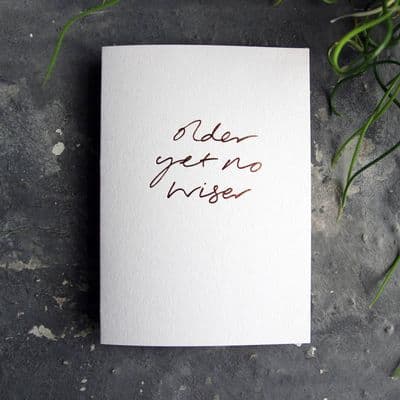 older
yet no
wiser